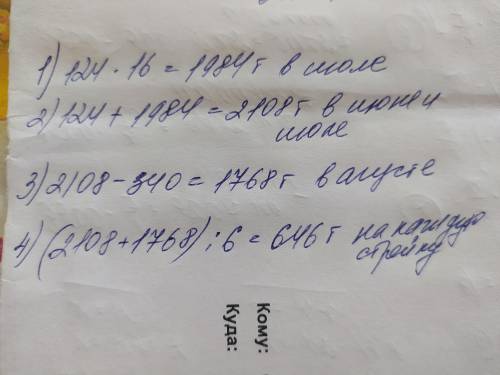 1) 124 · 16 = 1984т в июле
2) 124 + 1984 = 2108т в июне и
июле
3) 2108 - 340 = 1768т в августе
4) (2108 + 1768) : 6 = 646т на каждую
стройку
Кому:
Куда: